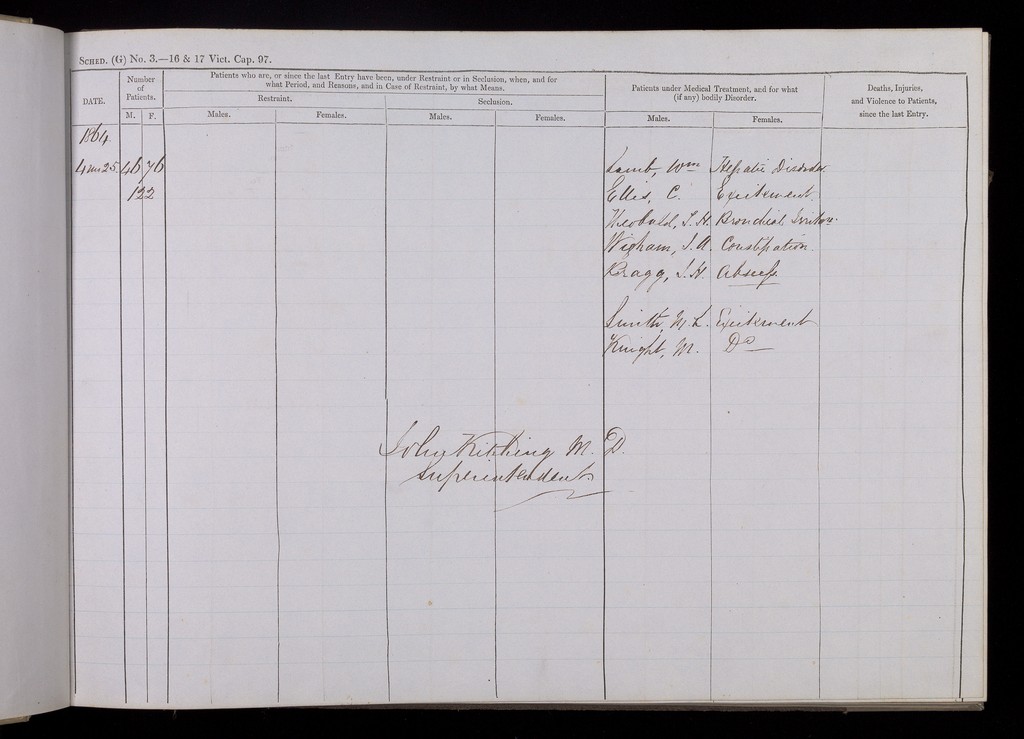 SCHED. (G) No. 3.—16 & 17 Vict. Cap. 97.
DATE.
Number of Patients.
M. F.
Patients who are, or since the last Entry have been, under Restraint or in Seclusion, when, and for
what Period, and Reasons, and in Case of Restraint, by what Means.
Restraint.
Seclusion.
Males. Females. Males. Females.
Patients under Medical Treatment, and for what
(if any) bodily Disorder.
Males. Females.
Deaths, Injuries,
and Violence to Patients,
since the last Entry.
1864
4 mo 25 46 76 Lamb, Wm Hepatic Disorder
122 Ellis, C. Excitement
Theobald, S. H. Bronchial Irriton
Wigham, S. A. Constipation
Bragg, S. H. Abscess
Smith, M. L. Excitement
Knight, M. Do
John Kitching M.D.
Superintendent